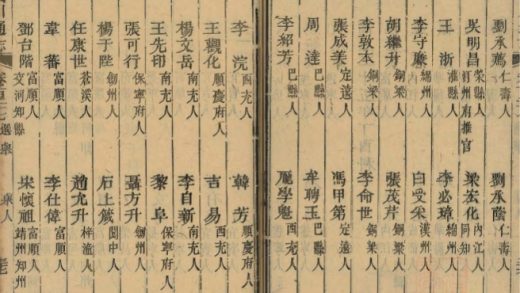 劉永 仁壽人 劉永蔭 仁壽人
吳明昌 榮縣人 汀州府推官 梁宏化 內江人 同知
王浙 灌縣人 李必璋 綿州人
李守廉 綿州人 白受采 漢州人
胡繼升 銅梁人 張茂芹 銅梁人
李敦本 銅梁人 李命世 銅梁人
張成美 定遠人 馮甲第 定遠人
周達 巴縣人 牟聘玉 巴縣人
李紹芳 巴縣人 龎學魁 西充人
李浣 西充人 韓芳 順慶府人
王觀化 順慶府人 吉易 西充人
楊文岳 南充人 李自新 南充人
王先印 保寧府人 黎阜 保寧府人
張可行 保寧府人 聶方升 劍州人
楊于陛 劍州人 石上 閬中人
任康世 蒼溪人 趙允升 梓潼人
韋蕃 富順人 李仕偉 富順人
鄧台階 富順人 交河知縣 宋楨祖 富順人 靖州知州
通志 選舉 舉人